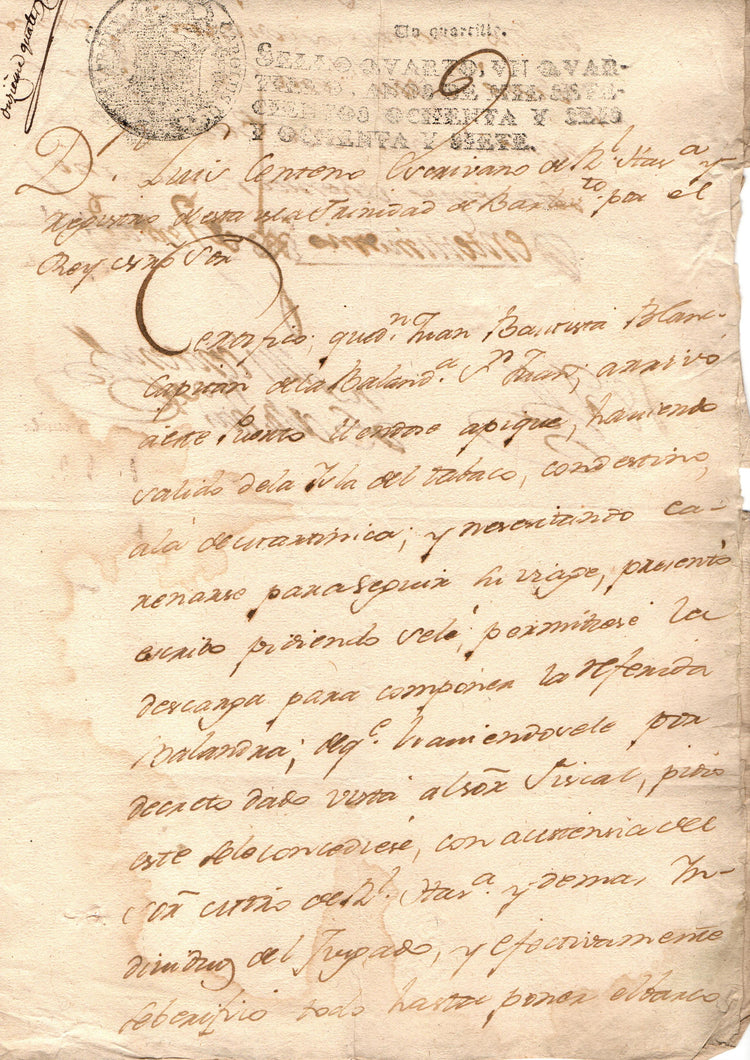 Un quartillo.
SELLO QVARTO, VN QVAR-
TILLO, AÑOS DE MIL SETE-
CIENTOS OCHENTA Y SEIS
Y OCHENTA Y SIETE.
D. Luis Centeno Escrivano de Rl. Hasa. y
registro de esta de la Trinidad de Barlto. por el
Rey nro Sor.
Certifico, que dn. Juan Bautista Blanc-
Capitan de la Balanda. Sn. Juan, arrivó
á este Puerto llendose apique, haviendo
salido dela Isla del tabaco, con destino,
ála de martinica; y nesesitando ca-
renarse para seguir su viage, presentó
escrito pidiendo sele permitiese la
descarga para componer la referida
Balandra; de qe. haviendosele por
decreto dado vista al Sor. Fiscal, pidio
este sele concediese, con asistensia del
Sor. mtro de Rl. Hasa. y demas In-
dividuos del Jusgado, y efectivamente
se berificó todo hasta poner el barco